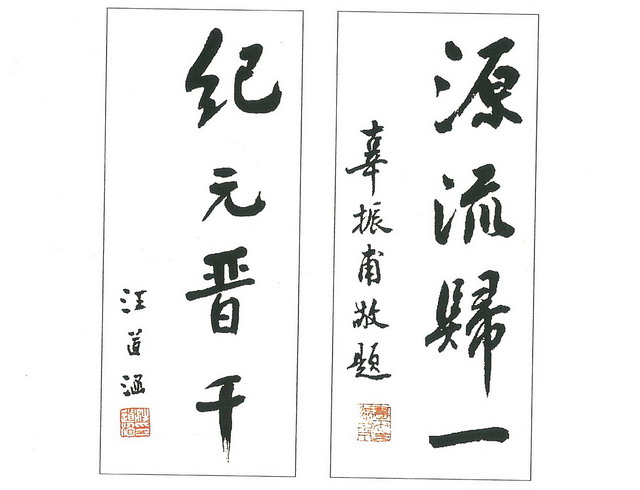 源流歸一
辜振甫敬題
纪元晋千
汪道涵